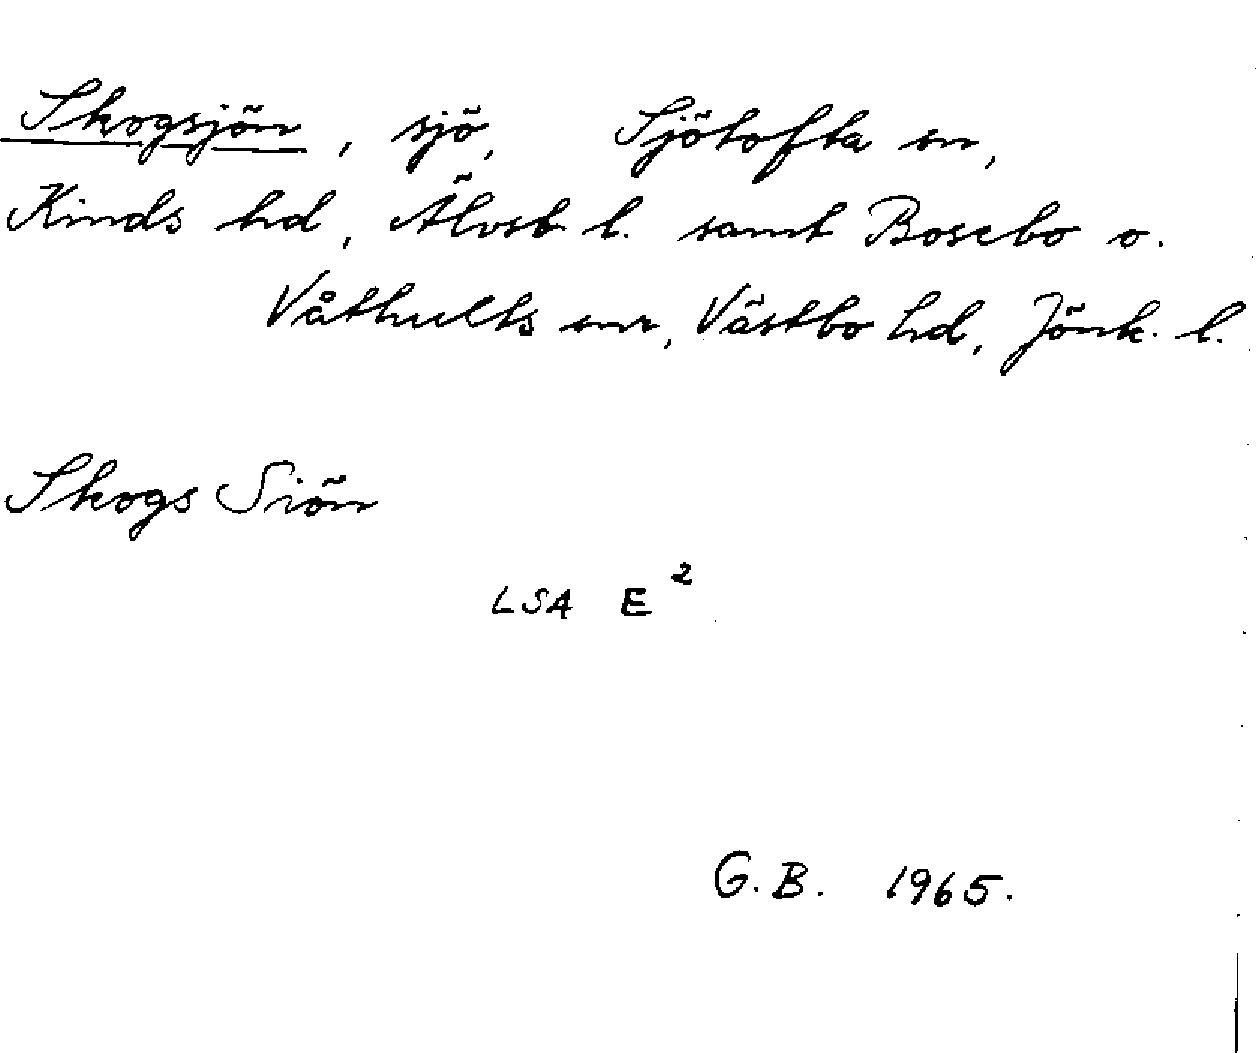 Skogsjön, sjö, Sjötofta sn,
Kinds hd, Älvsb l. samt Bosebo o.
Våthults snr, Västbo hd, Jönk. l.
Skogs Siön
LSA E²
G.B. 1965.